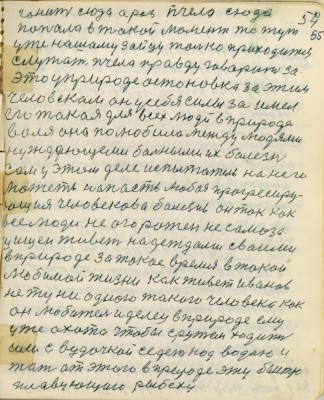 гонит сюда араз пчела сюда
попала в такой момент то тут
уже нашему зайцу только приходится
слушат пчела правду говорит за
это у природе остоновка за этим
человекам он у себя силы за имел
его такая для всех людй в природе
воля она полюбила между людями
нуждающеми больными их болезн
сам у этом деле испытател на него
может напасть любая прогресиру-
ющия человекова болезнь он так как
все люди не огорожен не самоза
щищен живет надеждами своими
в природе за такое время в такой
любимой жизни как живет иванов
нету ни одного такого человека как
он любител и делец в природе ему
уже охота чтобы с ружем ходить
или с вудочкой седет над водою и
ждат от этого в природе эту быстро
плавующаю рыбеху
57
55